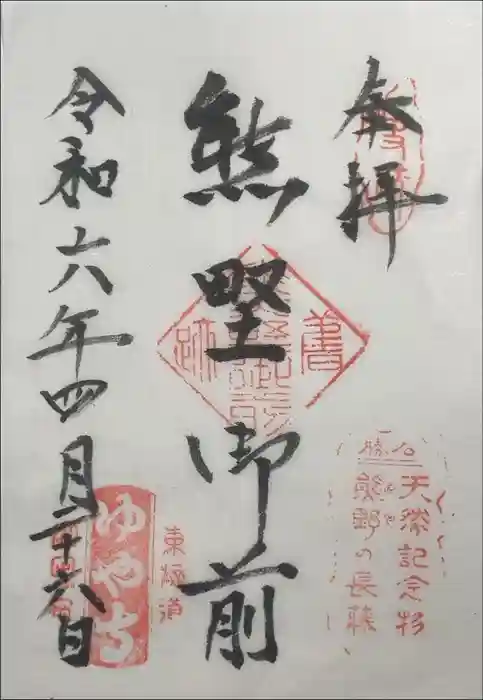 奉拝
熊野御前
令和六年四月二十六日
天然記念物
熊野の長藤
東海道
ゆや寺